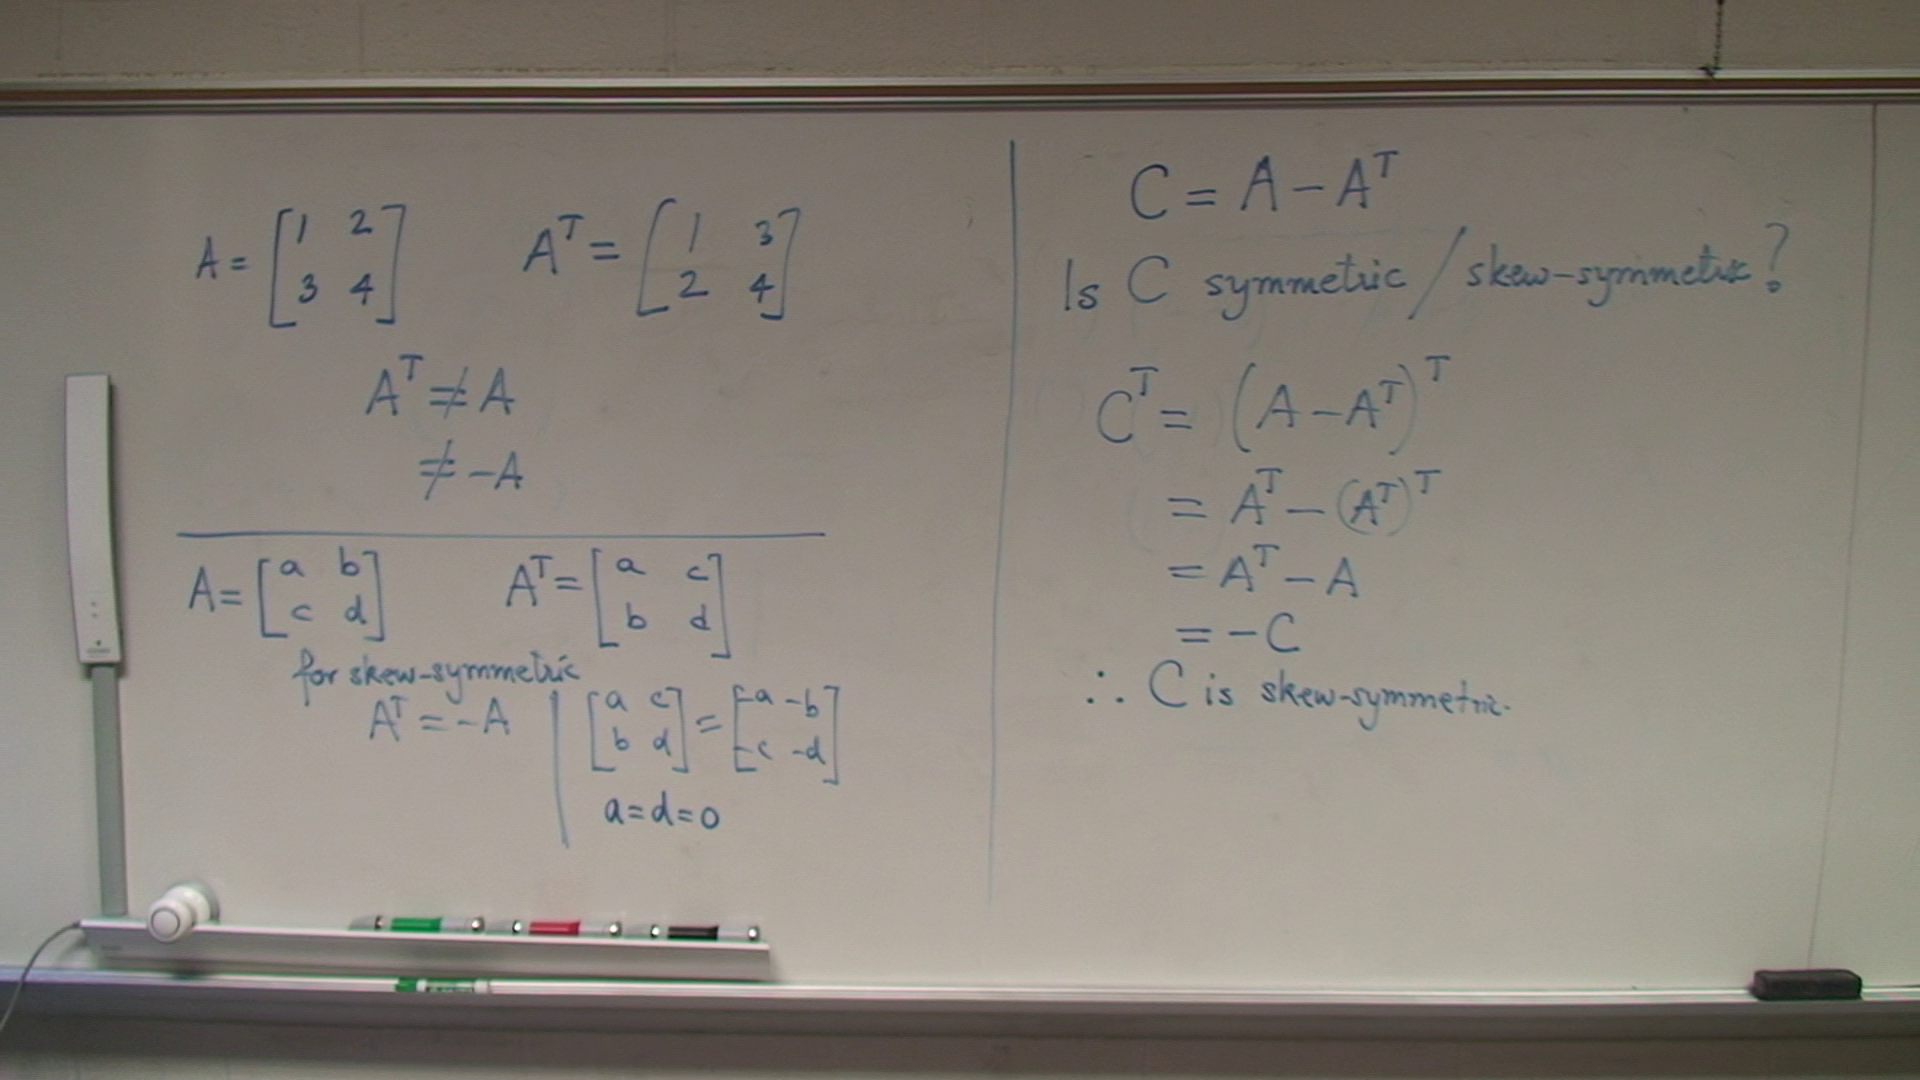 A = [1 2 3 4] A^T = [1 3 2 4]
A^T ≠ A
≠ -A
A = [a b c d] A^T = [a c b d]
for skew-symmetric
A^T = -A | [a c b d] = [-a -b -c -d]
a = d = 0
C = A - A^T
Is C symmetric / skew-symmetric?
C^T = (A - A^T)^T
= A^T - (A^T)^T
= A^T - A
= -C
∴ C is skew-symmetric.